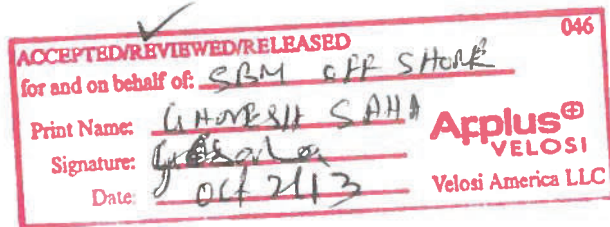 046
ACCEPTED/REVIEWED/RELEASED
for and on behalf of: SBM OFF SHORE
Print Name: GHONESH SAHA
Signature:
Date: Oct 2113
Applus⊕
VELOSI
Velosi America LLC